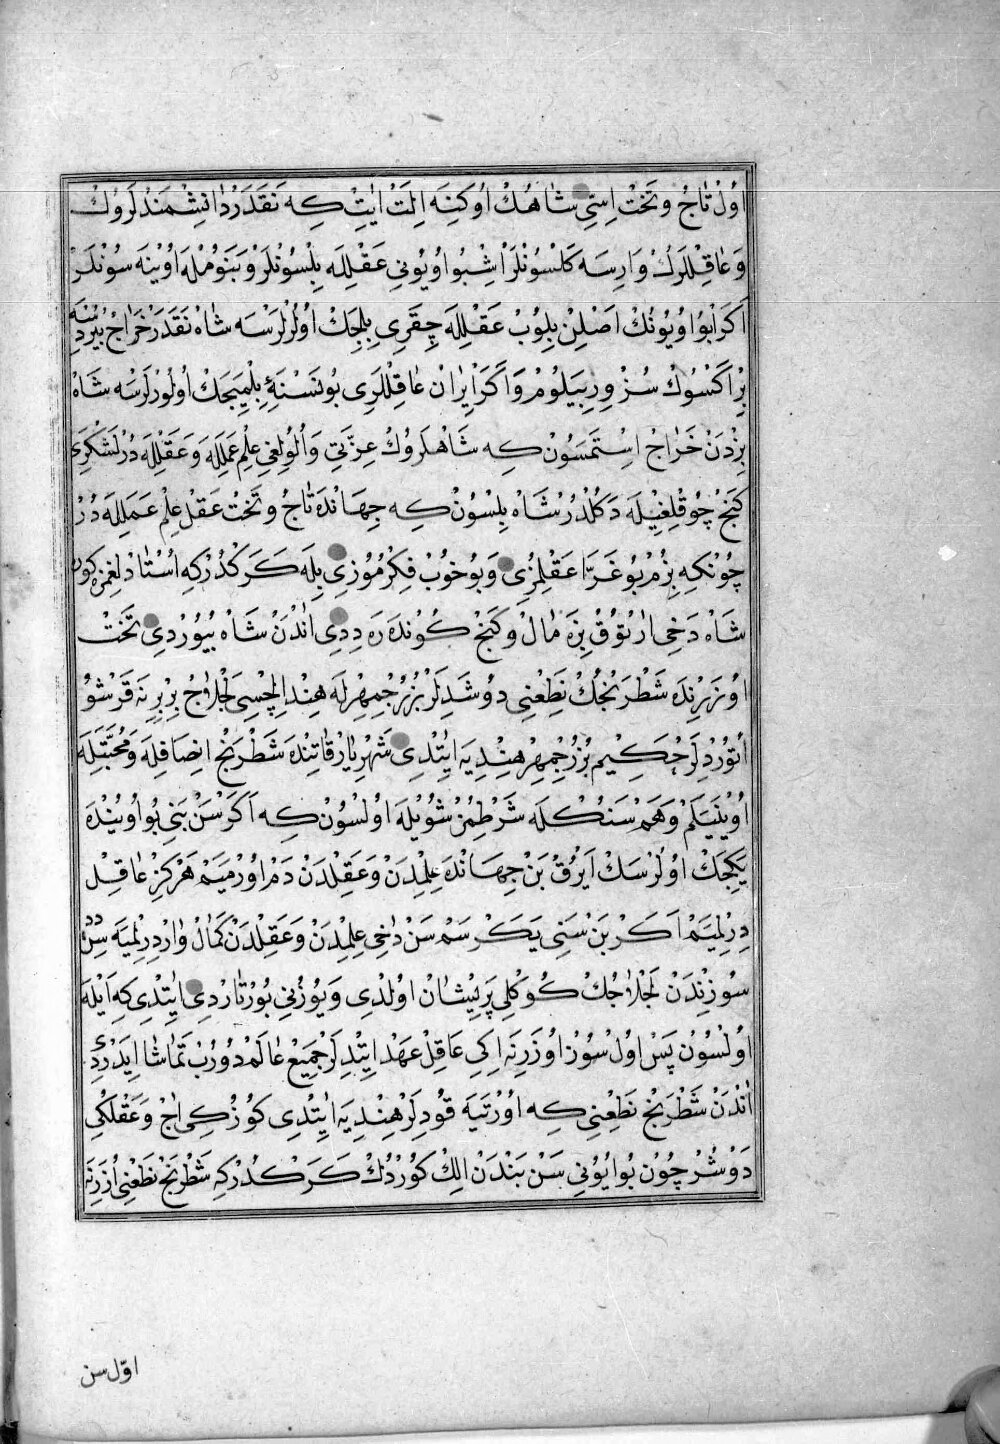 اُولْ تَاجُ وتَخْتْ اِسّٖى شَاهُكْ اُوكِنَه اِلَتْ اَيِتْ كِه نَقَدَرْ دَانِشْمَنْدْلَرُوكْ
وَعَاقِلْلَرِكْ وَارِسَه كَلْسُونْلَرْ اُشْبُو اُويُونِى عَقْلِلَه بِلْسُونْلَرْ وَبَنُومْلَه اُوينَه سُونْلَرْ
اَكَرْ بُو اُويُونُكْ اَصْلِنْ بِلُوبْ عَقْلِلَه چِقَرِى بِلِجِكْ اُولُرْلَرْسَه شَاهْ نَقَدَرْ خَرَاجْ بُيُرْدِسَه
بِزْ اَكْسُوكْ سُزْ وِرِبِيلُومْ وَاَكَرْ اِيرَانْ عَاقِلْلَرِى بُونَسْنَهٔ بِلْمِيَجَكْ اُولُورْلَرْسَه شَاهْ
بِزْدَنْ خَرَاجْ اِسْتَمَسُونْ كِه شَاهْلَرُوكْ عِزَّتِى وَاُلُولِغِى عِلْم عَمَلِلَه وَعَقْلِلَه دُرْ لَشْكَرِى
كَنْجْ چُوقْلِغِيْلَه دَكُلْدُرْ شَاهْ بِلْسُونْ كِه جِهَانْدَه تَاجُ وتَخْتْ عَقْلْ عِلْم عَمَلِلَه دُرْ
چُونْكِه بِزُمْ بُو غَرَّا عَقْلِمِزِى وَبُو خُوبْ فِكْرْمُوزِى بِلَه كَرَكْدُرْكِه اُسْتَادْلِغِمِزِه كُورَه
شَاهْ دَخِى اَرْتُوقْ بِزَه مَالْ وكَنْجْ كُونْدَرَه دِدِى اَنْدَنْ شَاهْ بُيُورْدِى تَخْتْ
اُوزَرِنْدَه شَطْرَنْجُكْ نَطْعِنِى دُوشَدِلَرْ بُزُرْجُمِهِرْلَه هِنْد اِلْچِسِى لَجْلَاجْ بِرْبِرِنَه قَرْشُو
اُتُورْدِلَر حَكِيم بُزُرْجُمِهِرْ هِنْدِيَه اَيِتْدِى شَهْرِيَارْ قَاتِنْدَه شَطْرَنْجْ اِنْصَافِلَه وَمُحَبَّتِلَه
اُوينَيَلِمْ وَهَمْ سَنُكْلَه شَرْطِمُزْ شُويْلَه اُولْسُونْ كِه اَكَرْ سَنْ بَنِى بُو اُويُنْدَه
يَكِجَكْ اُولُرْسَكْ اَيْرُقْ بَنْ جِهَانْدَه عِلْمِدَنْ وَعَقِلْدَنْ دَمْ اُورْمَيَمْ هَرْكِزْ عَاقِلْ
دِرِلْمَيَمْ اَكَرْ بَنْ سَنِى يَكَرْسَمْ سَنْ دَخِى عِلْمِدَنْ وَعَقِلْدَنْ كَمَالْ وَارْ دِرِلْمَيَه سِنْ دِدِ
سُوزِنْدَنْ لَجْلَاجُكْ كُوكْلِى پَرِيشَانْ اُولْدِى وَيُوزُنِى بُورْتَارْدِى اَيِتْدِى كِه اَيْلَه
اُولْسُونْ پَسْ اُولْ سُوزْ اُوزَرِنَه اِكِى عَاقِلْ عَهْد اِيتْدِلَرْ جَمِيعْ عَالَمْ دُورُبْ تَمَاشَا اِيدَرْدِى
اَنْدَنْ شَطْرَنْجْ نَطْعِنِى كِه اُورْتَيَه قُودِلَرْ هِنْدِيَه اَيِتْدِى كُوزُكِى اَچْ وَعَقْلَكِى
دَوْشُرْ چُونْ بُو اُيُونِى سَنْ بَنْدَنْ اِلِكْ كُورْدُكْ كَرَكْدُرْكِه شَطْرَنْجْ نَطْعِنِى اُزَرِنَه
اوّل سن